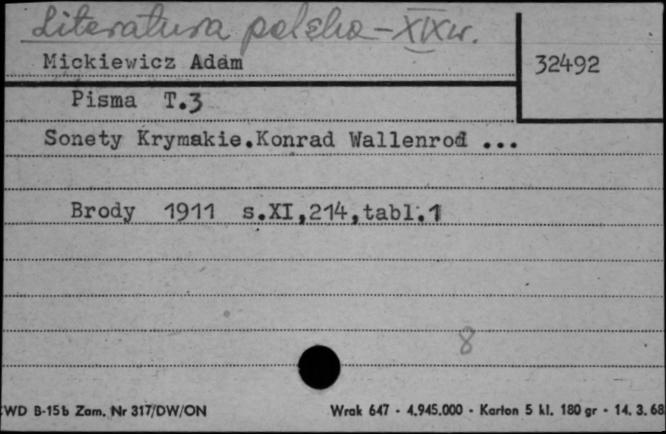 Literatura polska - XIX w.
Mickiewicz Adam
32492
Pisma T.3
Sonety Krymakie.Konrad Wallenrod ...
Brody 1911 s.XI,214,tabl.1
8
CWD B-15b Zam. Nr 317/DW/ON
Wrak 647 - 4.945.000 - Karton 5 kl. 180 gr - 14. 3. 68